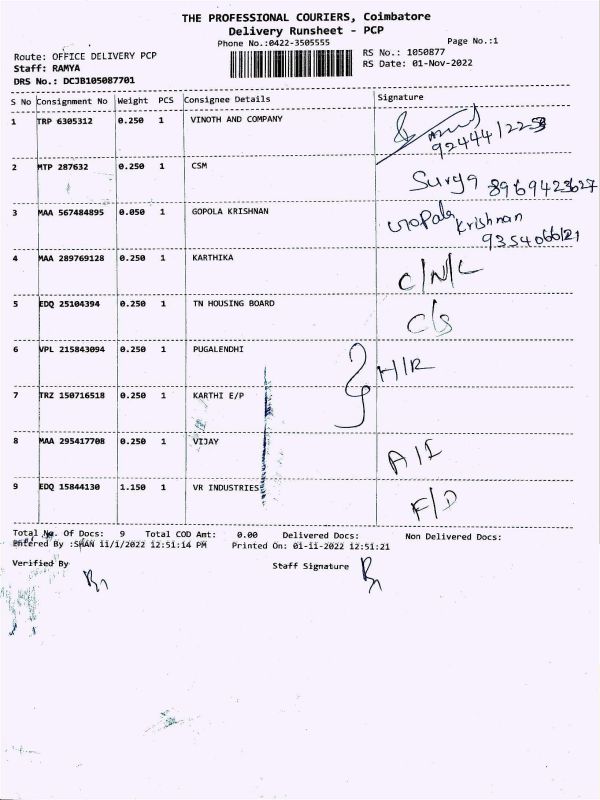 THE PROFESSIONAL COURIERS, Coimbatore
Delivery Runsheet - PCP
Phone No.:0422-3505555
Page No.:1
Route: OFFICE DELIVERY PCP
RS No.: 1050877
Staff: RAMYA
RS Date: 01-Nov-2022
DRS No.: DCJB105087701
S No Consignment No Weight PCS Consignee Details Signature
1 TRP 6305312 0.250 1 VINOTH AND COMPANY
2 MTP 287632 0.250 1 CSM Surya 8969423627
3 MAA 567484895 0.050 1 GOPOLA KRISHNAN Gopala Krishnan
9354066121
4 MAA 289769128 0.250 1 KARTHIKA C/N/L
5 EDQ 25104394 0.250 1 TN HOUSING BOARD C/S
6 VPL 215843094 0.250 1 PUGALENDHI H/R
7 TRZ 150716518 0.250 1 KARTHI E/P
8 MAA 295417708 0.250 1 VIJAY A/I
9 EDQ 15844130 1.150 1 VR INDUSTRIES F/D
Total No. Of Docs: 9 Total COD Amt: 0.00 Delivered Docs: Non Delivered Docs:
Entered By :SHAN 11/1/2022 12:51:14 PM Printed On: 01-11-2022 12:51:21
Verified By
Staff Signature